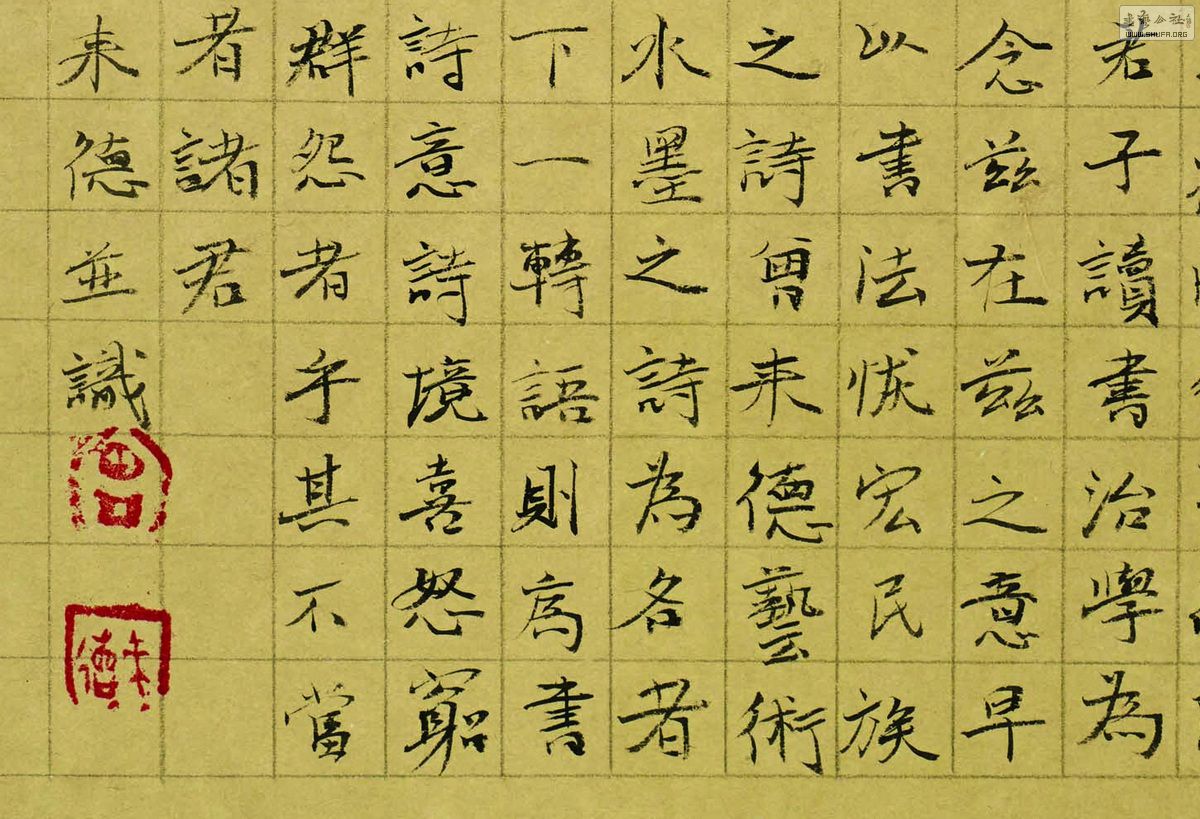 君子讀書治學為
念茲在茲之意早
以書法恢宏民族
之詩曾来德藝術
水墨之詩為各者
下一轉語則為書
詩意詩境喜怒窮
群怨者乎其不當
者諸君
来德並識
曾
来德
WWW.SHUFA.ORG